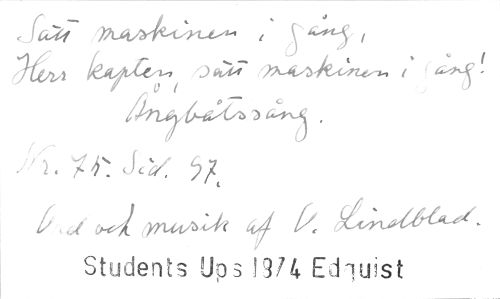 Sätt maskinen i gång,
Herr kapten, sätt maskinen i gång!
Ångbåtssång.
Nr. 75. Sid. 97.
Ord och musik af O. Lindblad.
Students Ups 1874 Edquist